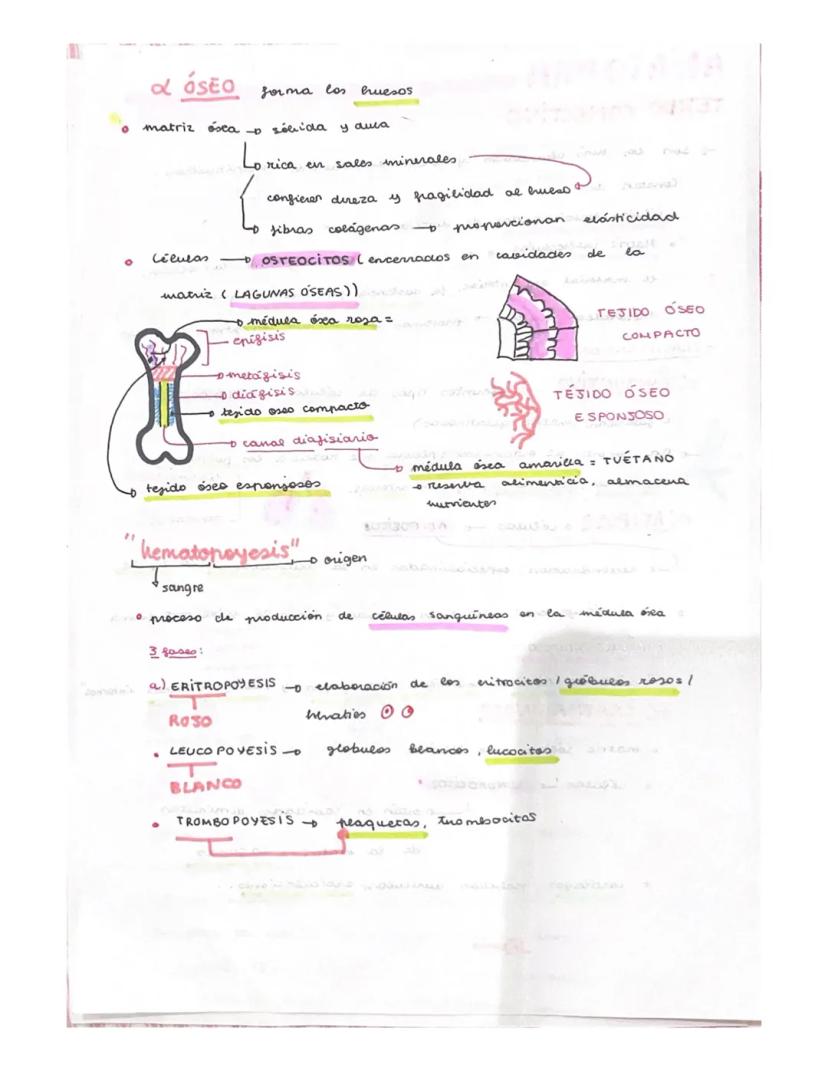 α ÓSEO forma los huesos
• matriz ósea → sólida y dura
→ rica en sales minerales
confieren dureza y fragilidad al hueso
→ fibras colágenas → proporcionan elásticidad
• Células → OSTEOCITOS (encerrados en cavidades de la
matriz ( LAGUNAS OSEAS))
médula ósea roja =
epífisis
TEJIDO ÓSEO
COMPACTO
metáfisis
diáfisis
tejido oseo compacto
TÉJIDO ÓSEO
ESPONJOSO
canal diafisiario
médula ósea amarilla = TUÉTANO
→ reserva alimenticia, almacena
nutrientes
tejido óseo esponjosos
"hematopoyesis" → origen
sangre
• proceso de producción de células sanguíneas en la médula ósea
3 fases:
a) ERITROPOYESIS → elaboración de los eritrocitos / glóbulos rojos /
ROJO
hematíes
• LEUCOPOYESIS → globulos blancos, lucocitos
BLANCO
• TROMBOPOYESIS → plaquetas, trombocitos